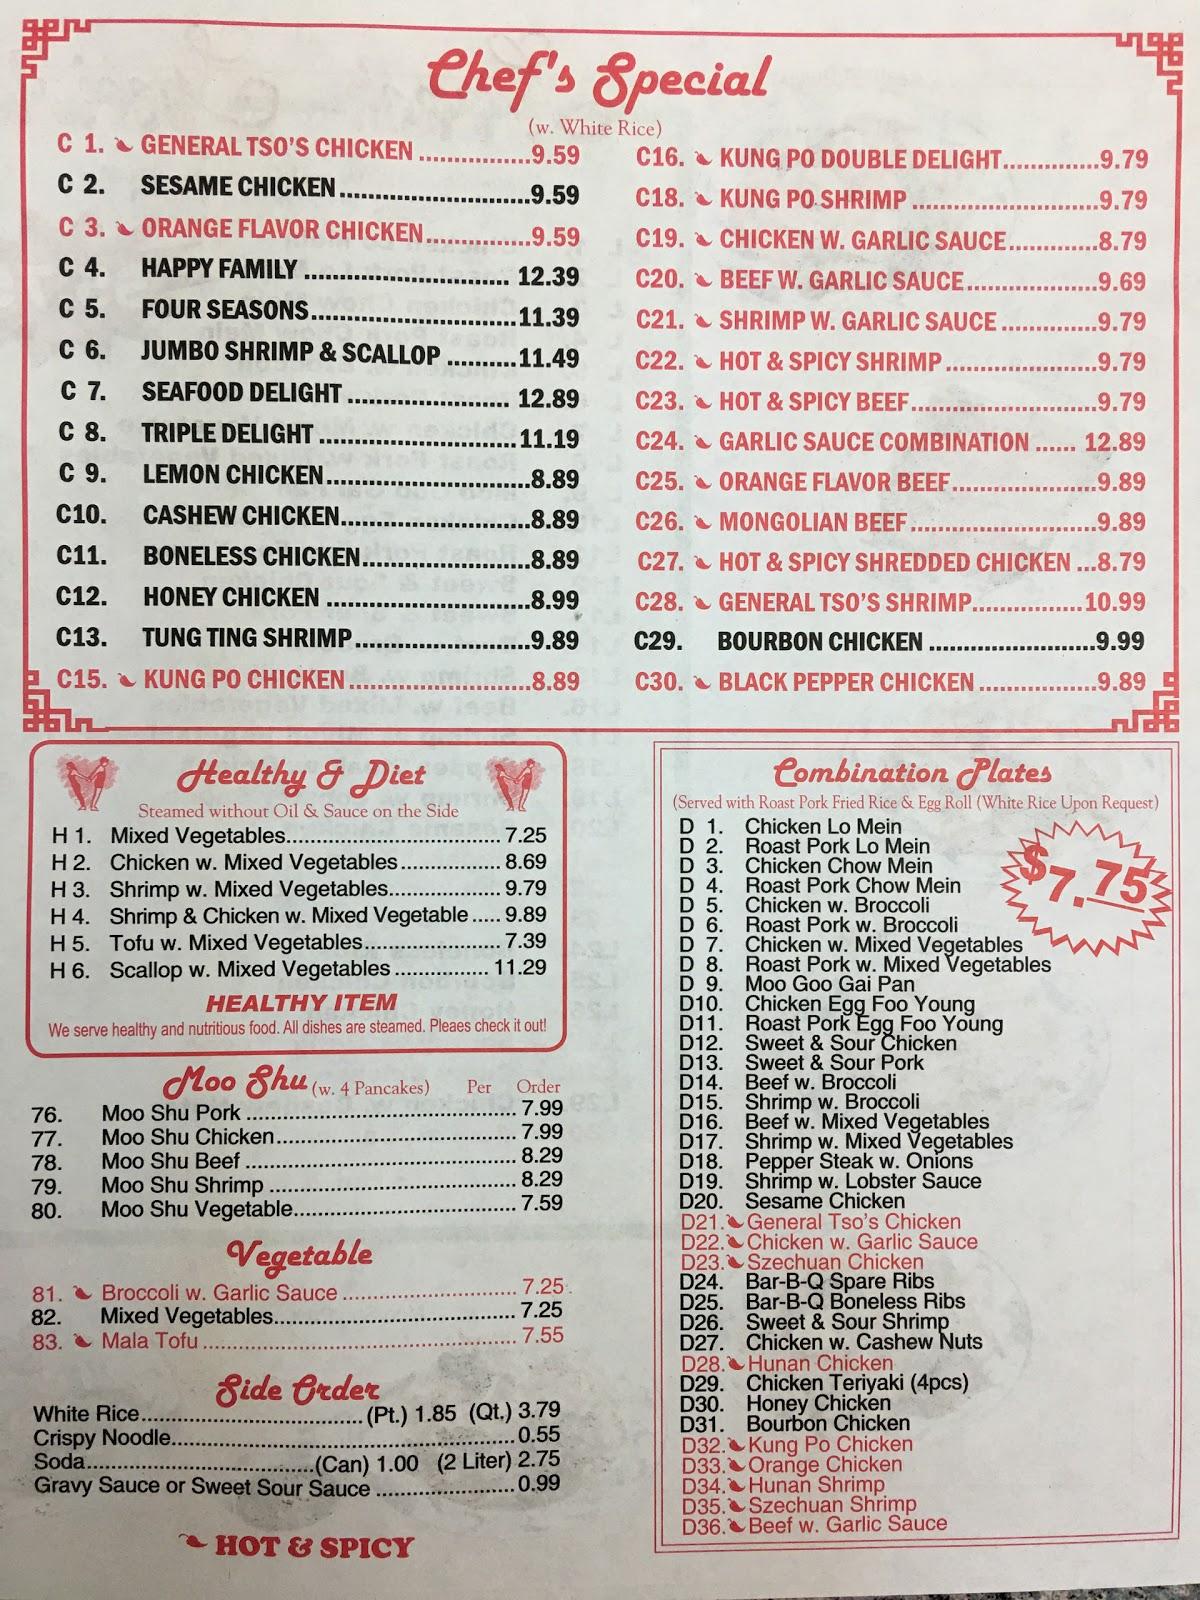 Chef's Special
(w. White Rice)
C 1. GENERAL TSO'S CHICKEN ..............9.59
C 2. SESAME CHICKEN...........................9.59
C 3. ORANGE FLAVOR CHICKEN.............9.59
C 4. HAPPY FAMILY ........................... 12.39
C 5. FOUR SEASONS...........................11.39
C 6. JUMBO SHRIMP & SCALLOP .........11.49
C 7. SEAFOOD DELIGHT ..................... 12.89
C 8. TRIPLE DELIGHT ..........................11.19
C 9. LEMON CHICKEN..........................8.89
C10. CASHEW CHICKEN........................8.89
C11. BONELESS CHICKEN.....................8.89
C12. HONEY CHICKEN ..........................8.99
C13. TUNG TING SHRIMP......................9.89
C15. KUNG PO CHICKEN.......................8.89
C16. KUNG PO DOUBLE DELIGHT............9.79
C18. KUNG PO SHRIMP .......................9.79
C19. CHICKEN W. GARLIC SAUCE...........8.79
C20. BEEF W. GARLIC SAUCE................9.69
C21. SHRIMP W. GARLIC SAUCE ............9.79
C22. HOT & SPICY SHRIMP...................9.79
C23. HOT & SPICY BEEF.......................9.79
C24. GARLIC SAUCE COMBINATION ...... 12.89
C25. ORANGE FLAVOR BEEF..................9.89
C26. MONGOLIAN BEEF.......................9.89
C27. HOT & SPICY SHREDDED CHICKEN ...8.79
C28. GENERAL TSO'S SHRIMP..............10.99
C29. BOURBON CHICKEN .....................9.99
C30. BLACK PEPPER CHICKEN ...............9.89
Healthy & Diet
Steamed without Oil & Sauce on the Side
H 1. Mixed Vegetables................................ 7.25
H 2. Chicken w. Mixed Vegetables............... 8.69
H 3. Shrimp w. Mixed Vegetables................. 9.79
H 4. Shrimp & Chicken w. Mixed Vegetable ..... 9.89
H 5. Tofu w. Mixed Vegetables..................... 7.39
H 6. Scallop w. Mixed Vegetables .............. 11.29
HEALTHY ITEM
We serve healthy and nutritious food. All dishes are steamed. Pleaes check it out!
Moo Shu (w. 4 Pancakes) Per Order
76. Moo Shu Pork ........................................ 7.99
77. Moo Shu Chicken................................... 7.99
78. Moo Shu Beef ........................................ 8.29
79. Moo Shu Shrimp .................................... 8.29
80. Moo Shu Vegetable................................ 7.59
Vegetable
81. Broccoli w. Garlic Sauce .......................... 7.25
82. Mixed Vegetables.................................... 7.25
83. Mala Tofu ............................................... 7.55
Side Order
White Rice.................................(Pt.) 1.85 (Qt.) 3.79
Crispy Noodle..................................................0.55
Soda..................................(Can) 1.00 (2 Liter) 2.75
Gravy Sauce or Sweet Sour Sauce .....................0.99
HOT & SPICY
Combination Plates
(Served with Roast Pork Fried Rice & Egg Roll (White Rice Upon Request)
$7.75
D 1. Chicken Lo Mein
D 2. Roast Pork Lo Mein
D 3. Chicken Chow Mein
D 4. Roast Pork Chow Mein
D 5. Chicken w. Broccoli
D 6. Roast Pork w. Broccoli
D 7. Chicken w. Mixed Vegetables
D 8. Roast Pork w. Mixed Vegetables
D 9. Moo Goo Gai Pan
D10. Chicken Egg Foo Young
D11. Roast Pork Egg Foo Young
D12. Sweet & Sour Chicken
D13. Sweet & Sour Pork
D14. Beef w. Broccoli
D15. Shrimp w. Broccoli
D16. Beef w. Mixed Vegetables
D17. Shrimp w. Mixed Vegetables
D18. Pepper Steak w. Onions
D19. Shrimp w. Lobster Sauce
D20. Sesame Chicken
D21. General Tso's Chicken
D22. Chicken w. Garlic Sauce
D23. Szechuan Chicken
D24. Bar-B-Q Spare Ribs
D25. Bar-B-Q Boneless Ribs
D26. Sweet & Sour Shrimp
D27. Chicken w. Cashew Nuts
D28. Hunan Chicken
D29. Chicken Teriyaki (4pcs)
D30. Honey Chicken
D31. Bourbon Chicken
D32. Kung Po Chicken
D33. Orange Chicken
D34. Hunan Shrimp
D35. Szechuan Shrimp
D36. Beef w. Garlic Sauce